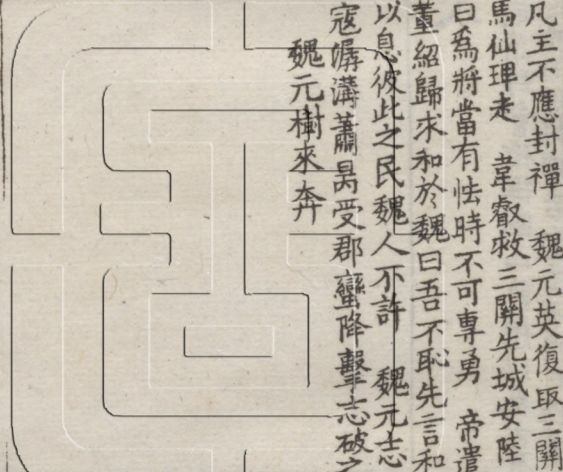 凡主不應封禪　魏元英復取三關
馬仙琕走　韋叡救三關先城安陸
曰爲將當有怯時不可專勇　帝遣
董紹歸求和於魏曰吾不恥先言和
以息彼此之民魏人不許　魏元志
寇潺溝蕭昺受郡蠻降擊志破之
魏元樹來奔